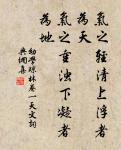 氣之輕清上浮者
為天
氣之重濁下凝者
為地
幼學瓊林卷一天文詞